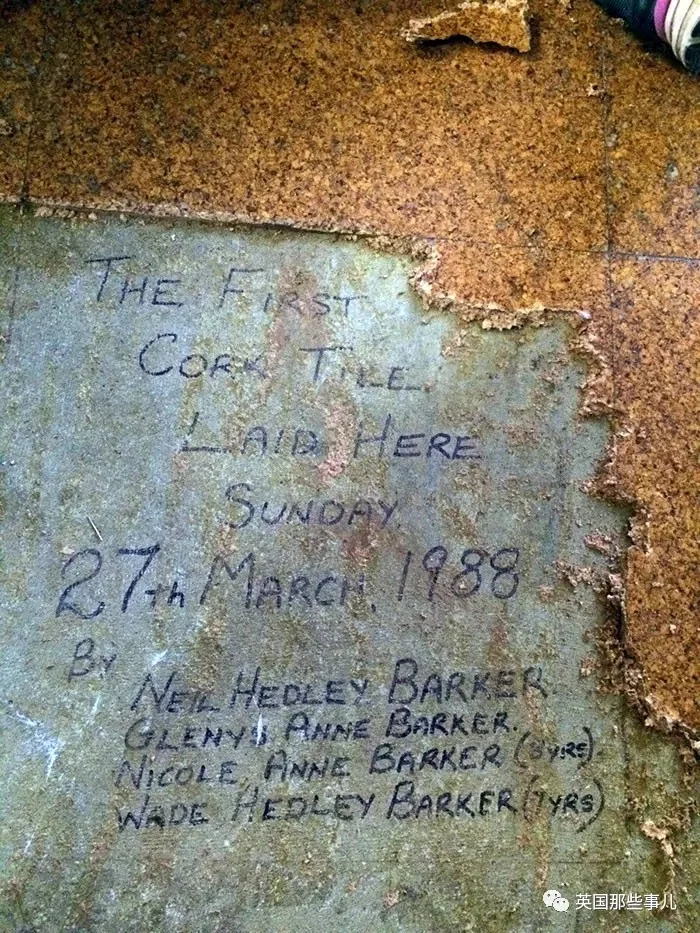 THE FIRST
CORK TILE.
LAID HERE
SUNDAY.
27th MARCH. 1988
BY
NEIL HEDLEY BARKER.
GLENYS ANNE BARKER.
NICOLE ANNE BARKER (8YRS).
WADE HEDLEY BARKER (7YRS)
英国那些事儿